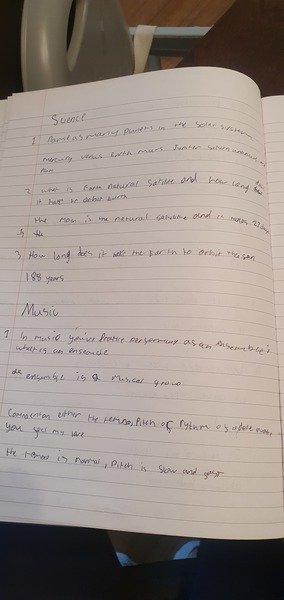 Science
1 Name as many planets in the solar system
mercury venus Earth mars Jupiter saturn uranus
2 what is Earth natural satilite and how long does
it take to orbit Earth
the moon is the natural satilite and it takes 27 days
3 How long does it take the Earth to orbit the sun
188 years
Music
1 In music you've Practice performing as an ensemble
what is an ensemble
ensemble is a musical group
either the tempo, Pitch or
you
the tempo is normal, Pitch is slow and